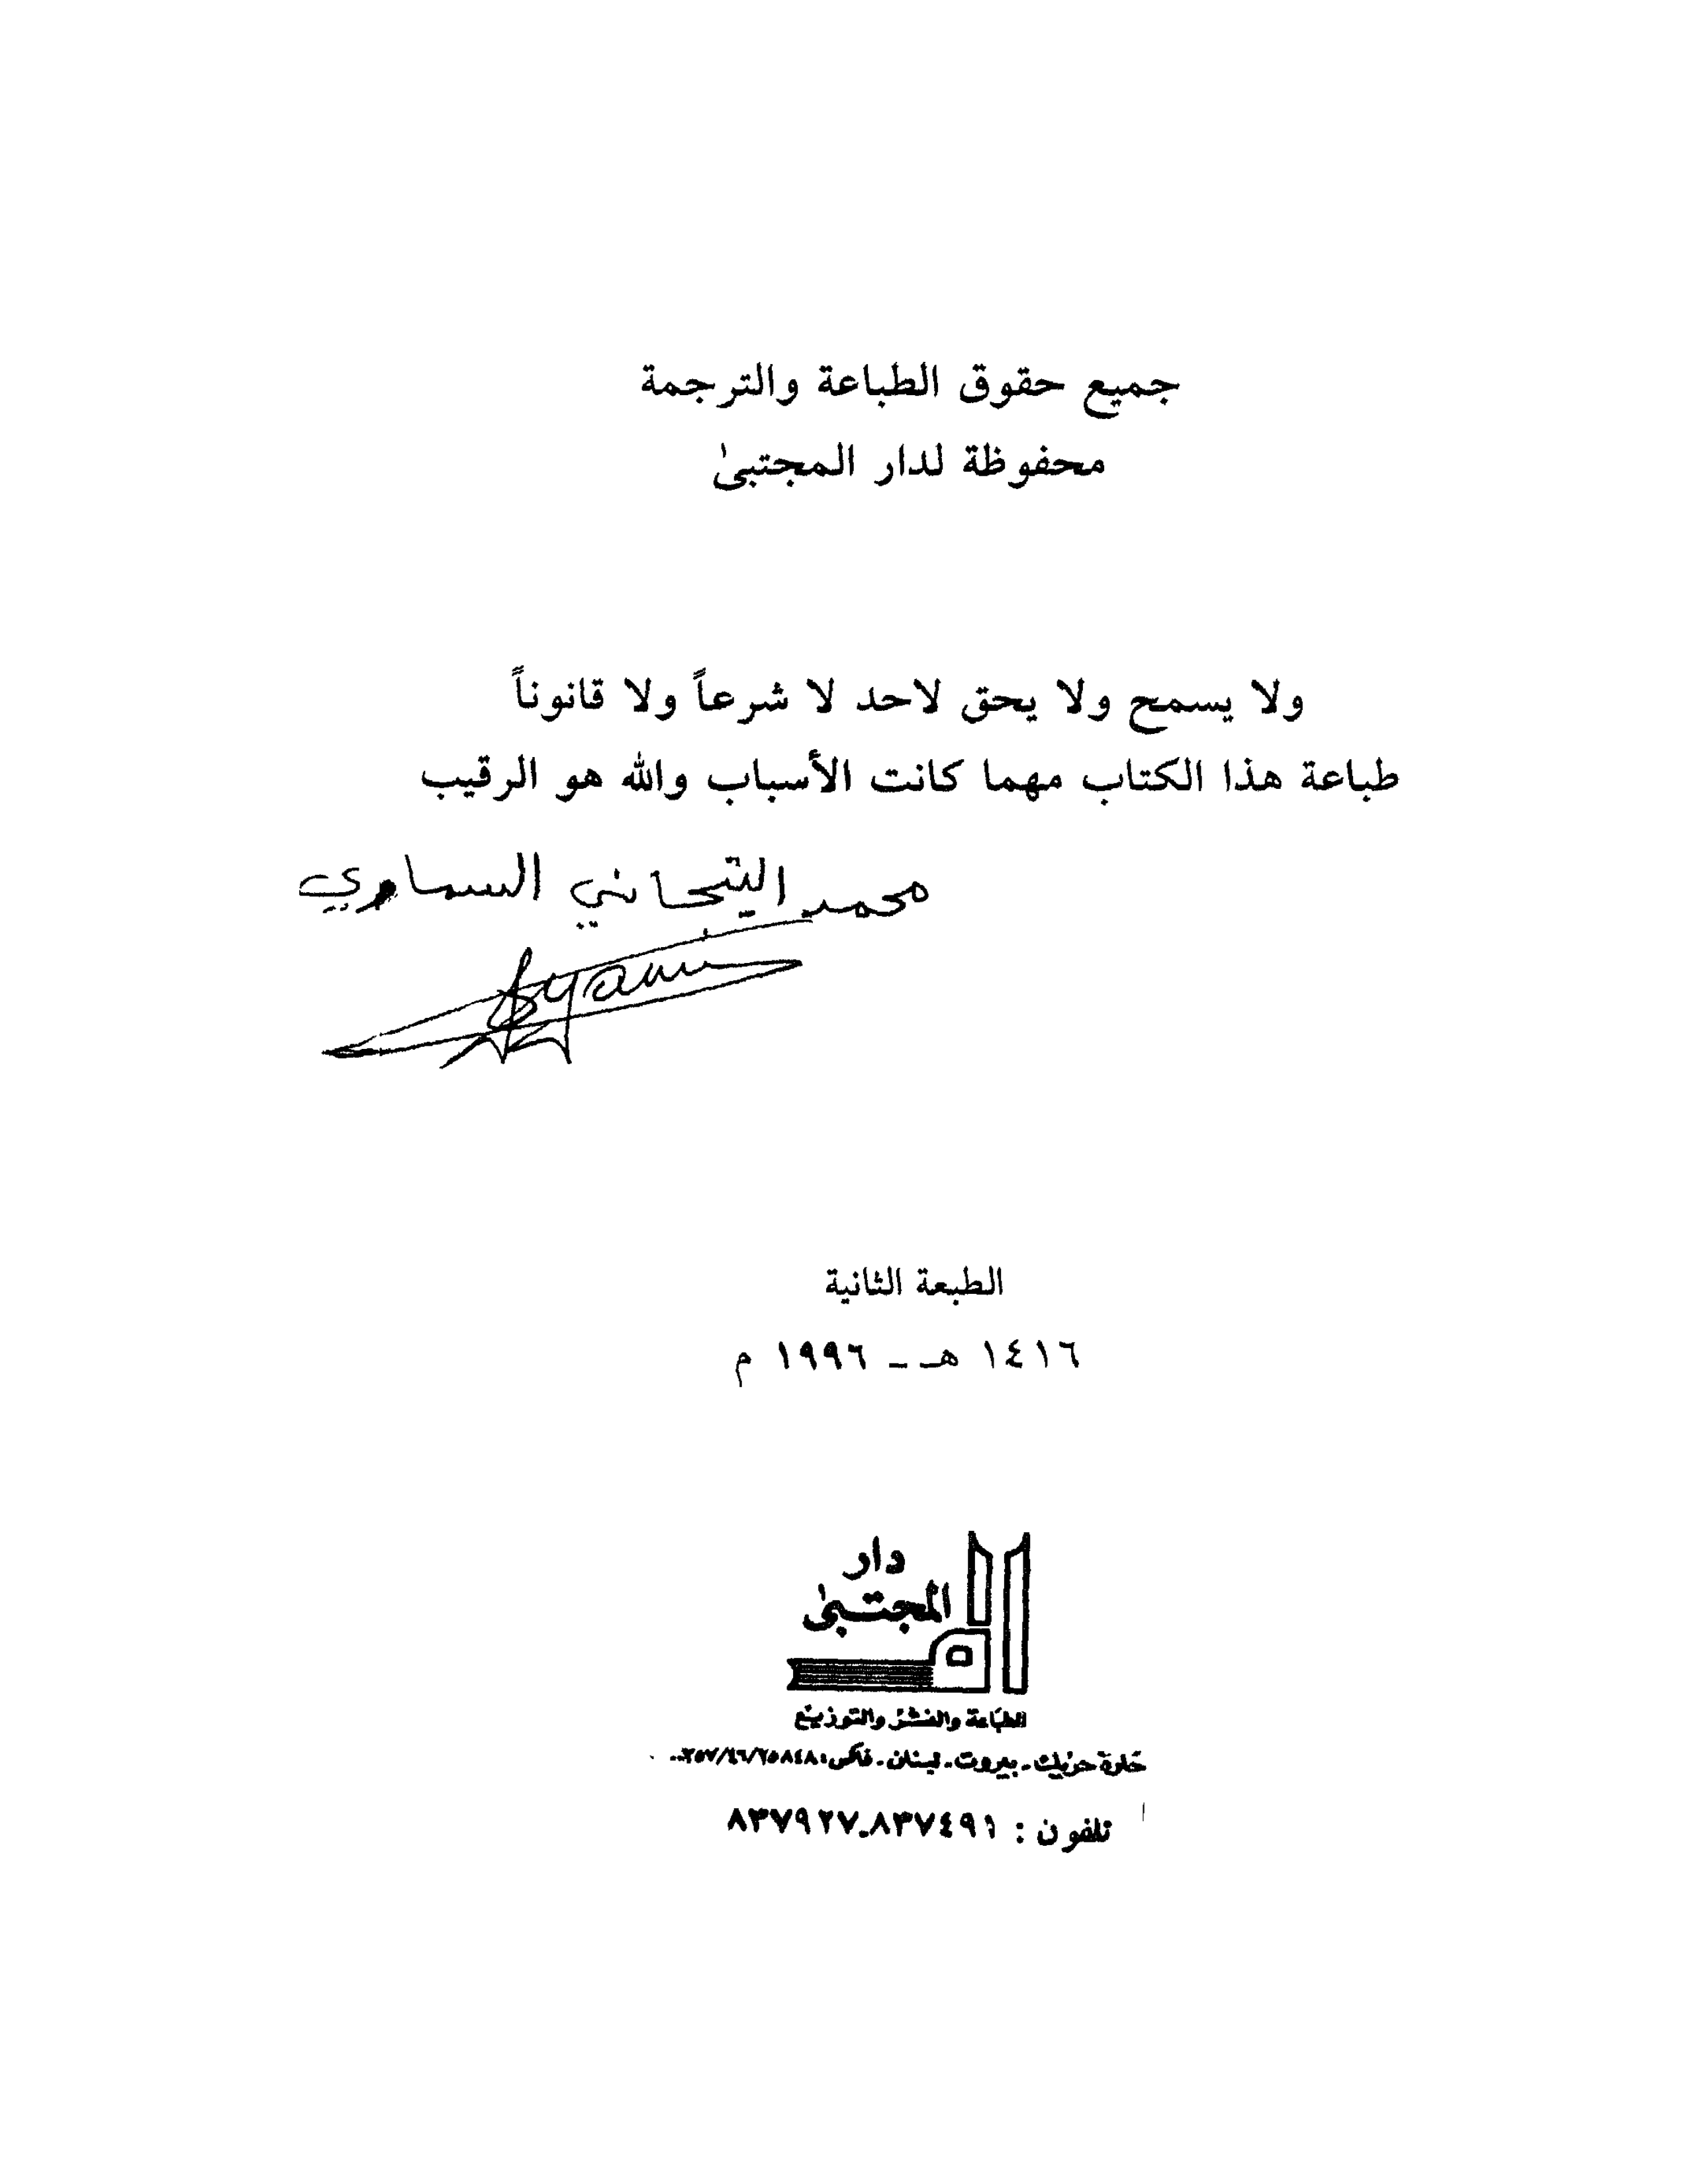 جميع حقوق الطباعة والترجمة
محفوظة لدار المجتبىٰ
ولا يسمح ولا يحق لاحد لا شرعاً ولا قانوناً
طباعة هذا الكتاب مهما كانت الأسباب والله هو الرقيب
محمد التيجاني السماوي
الطبعة الثانية
١٤١٦ هـ ــ ١٩٩٦ م
دار
المجتبىٰ
للطباعة والنشر والتوزيع
حارة حريك - بيروت - لبنان - فاكس:
تلفون : ٨٣٧٤٩١-٨٣٧٩٢٧